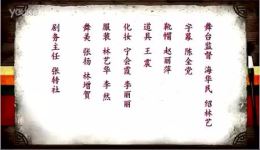 youku
舞台监督 海华民 绍林艺
字幕 陈金党
靴帽 赵丽萍
道具 王震
化妆 宁会霞 李丽丽
服装 林艺华 李然
舞美 张扬 林增贺
剧务主任 张铃社